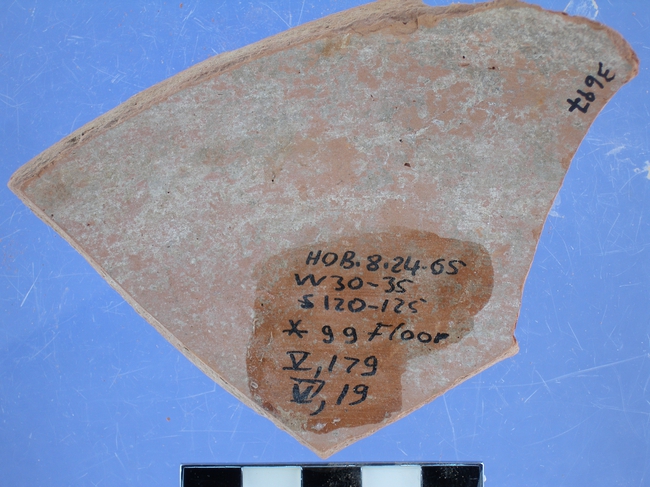 3697
HOB.8.24.65
W30-35
S120-125
* 99 Floor
V, 179
VI, 19